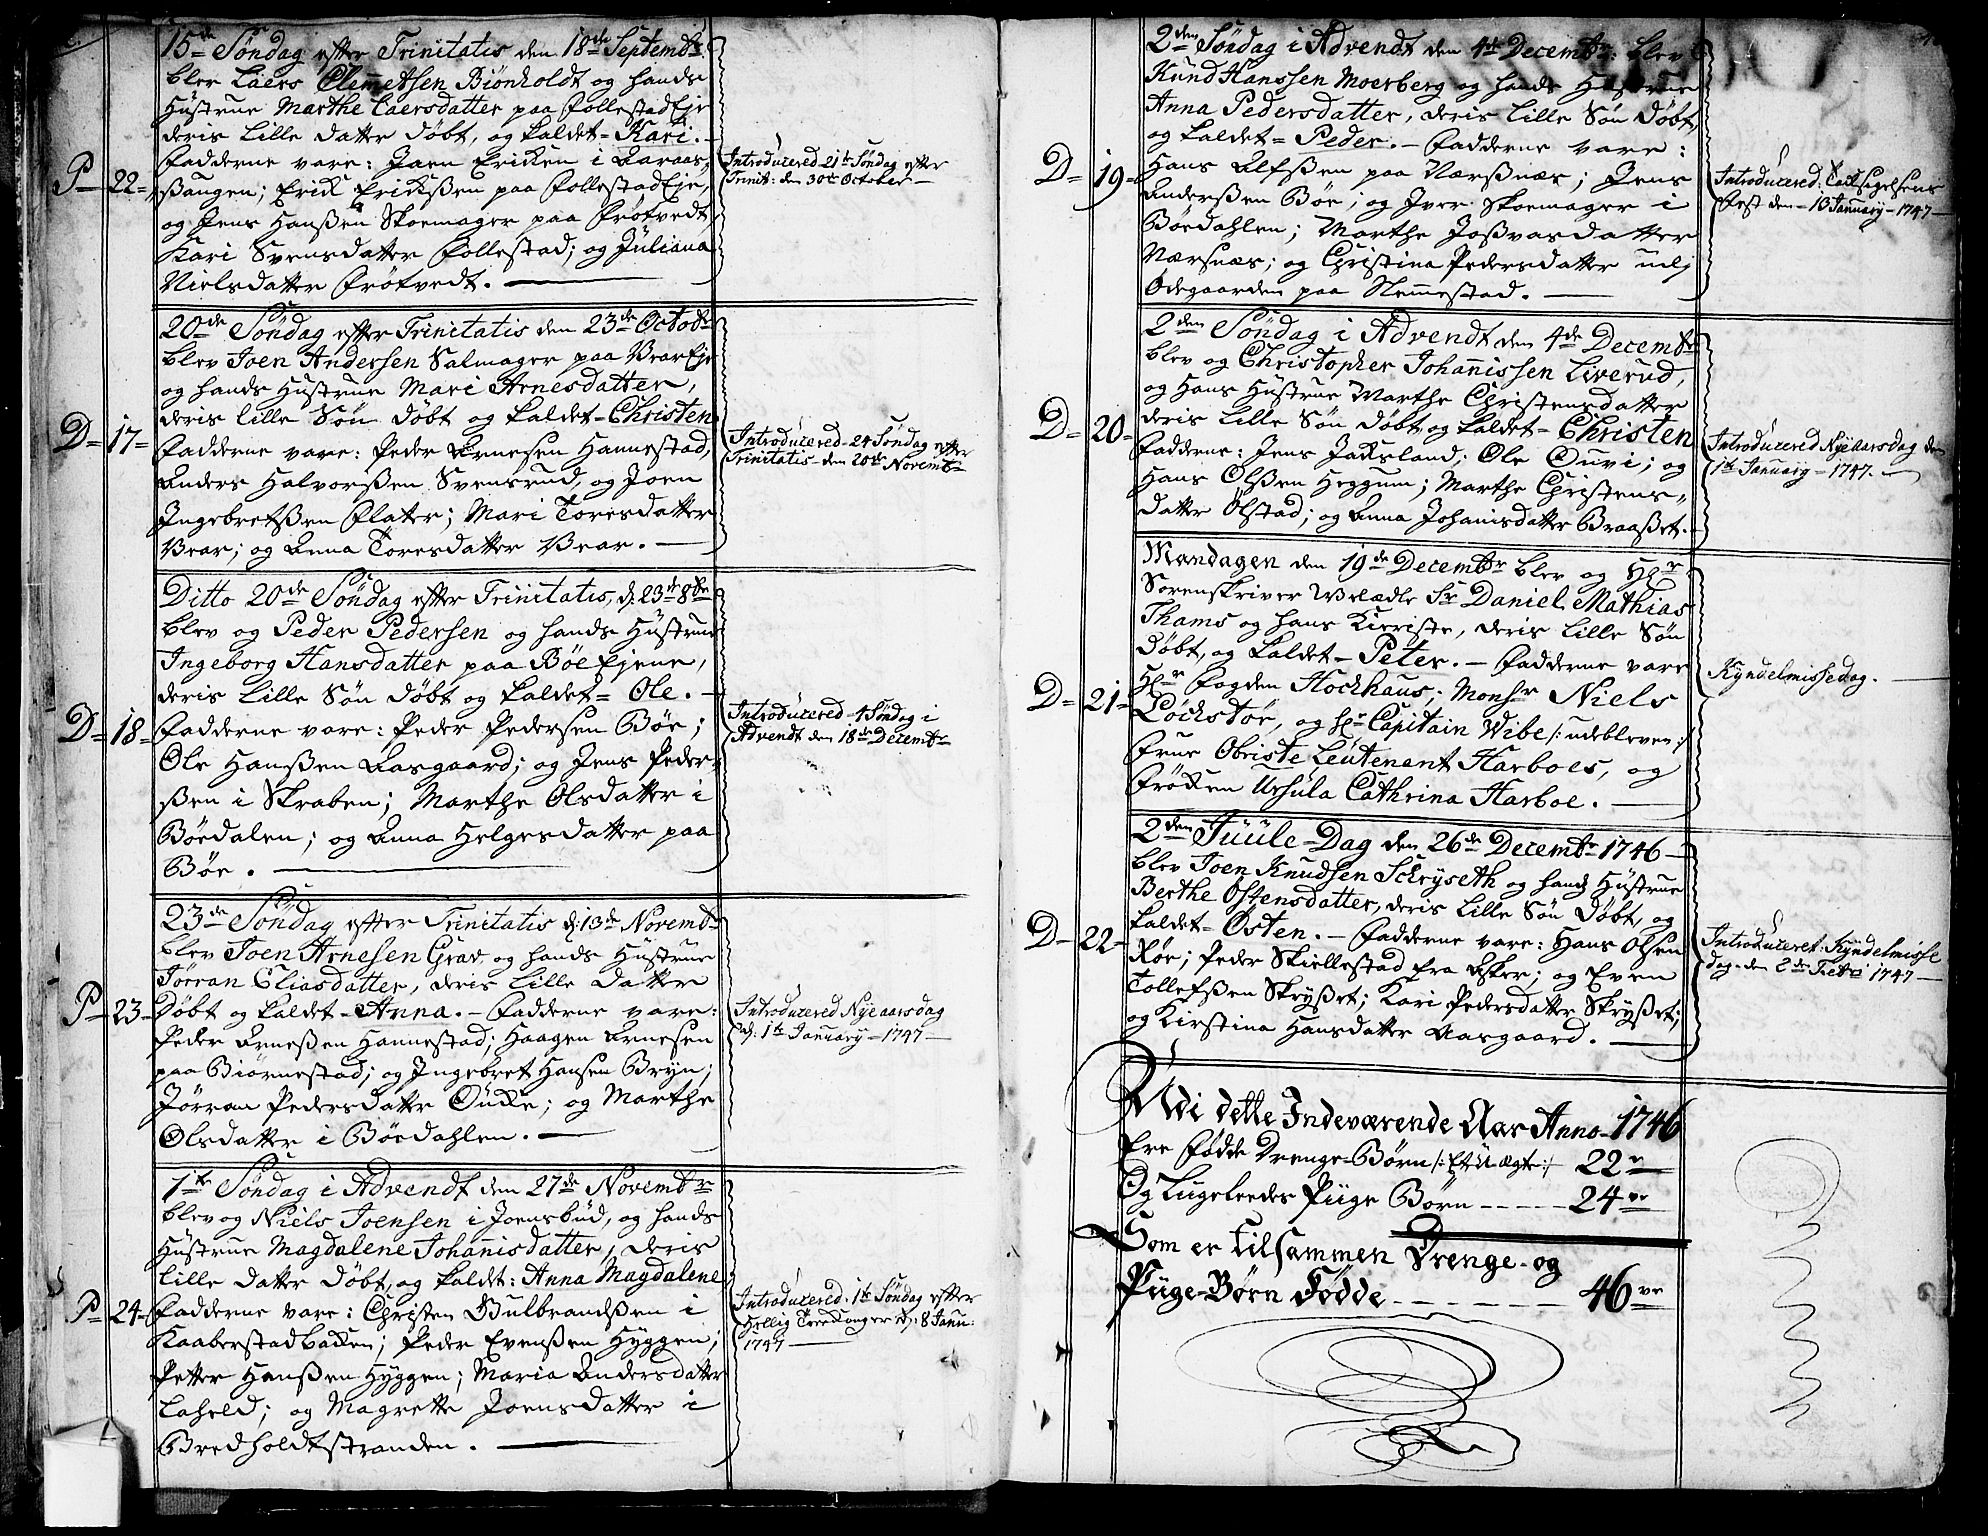 15de Søndag efter Trinitatis den 18de Septembr
blev Laers Clemetsen Biönholdt og hands
Hustrue Marthe Laersdatter paa FollestadEje
deris Lille datter døbt, og kaldet = Kari. -
Fadderne vare: Joen Ericksen i Aaraas„
P = 22 = ßaugen; Erick Erickßen paa FollestadEje,
og Jens Hanßen Skoemager paa Frötvedt
Kari Svensdatter Follestad; og Juliana
Nielsdatter Frötvedt.
Introducered 21de Søndag efter
Trinit: den 30de October
20de Søndag efter Trinitatis den 23de Octobr
blev Joen Andersen Salmager paa VearEje
og hands Hustrue Mari Arnesdatter,
deris lille Søn døbt og kaldet = Christen
D = 17 = Fadderne vare: Peder Arnesen Hannestad,
Anders Halvorßen Svensrud, og Joen
Ingebretßen Flater; Mari Toresdatter
Vear; og Anna Toresdatter Vear.
Introducered 24 Søndag efter
Trinitatis den 20de Novembr
Ditto 20de Søndag efter Trinitatis, d: 23de 8br
blev og Peder Pedersen og hands Hustrue
Ingeborg Hansdatter paa BöeEjene,
deris Lille Søn døbt og kaldet = Ole. -
D = 18 = Fadderne vare: Peder Pedersen Böe;
Ole Hanßen Aasgaard; og Jens Peder„
ßen i Skraben; Marthe Olsdatter i
Böedalen; og Anna Helgesdatter paa
Böe.
Introducered 4 Søndag i
Advendt den 18de Decembr
23de Søndag efter Trinitatis d: 13de Novembr
blev Joen Arnesen Grav og hands Hustrue
Jörran Eliasdatter, deris Lille datter
P = 23 = Døbt og kaldet = Anna. - Fadderne vare:
Peder Arneßen Hannestad; Haagen Arnesen
paa Biörnestad; og Ingebret Hansen Bryn;
Jörran Pedersdatter Ouke; og Marthe
Olsdatter i Böedahlen.
Introducered Nyeaarsdag
d: 1te January = 1747
1te Søndag i Advendt den 27de Novembr
blev og Niels Joensen i Joensbud, og hands
Hustrue Magdalene Johannisdatter, deris
lille datter døbt, og kaldet: Anna Magdalene
P = 24 = Fadderne vare: Christen Gulbrandßen i
Kaaberstadbacken; Peder Evenßen Hyggen;
Petter Hanßen Hyggen; Maria Andersdatter
Laheld; og Magrette Joensdatter i
Bredholdtstranden.
Introducered 1te Søndag efter
Hellig Tre Konger d: 8 Janu:
1747
2den Søndag i Advendt den 4de Decembr: blev
Knud Hanssen Moerberg og hands Hustrue
Anna Pedersdatter, deris lille Søn Døbt,
og kaldet = Peder. - Fadderne vare:
D = 19 = Hans Alfßen paa Nærßnæs; Jens
Anderßen Böe; og Iver Skoemager i
Böedahlen; Marthe Joßvasdatter
Nærsnæs; og Christina Pedersdatter
Ödegaarden paa Slemmestad.
Fest den 1747
2den Søndag i Advendt den 4de Decembr
blev og Christopher Johanissen Liverud,
og Hans Hustrue Marthe Christensdatter
deris Lille Søn døbt og kaldet = Christen
D = 20 = Fadderne: Jens Jaksland; Ole Ouvi; og
Hans Olßen Heggum; Marthe Christens„
datter Ölstad; og Anna Johanisdatter Braaßet.
Introducered Nyeaarsdag den
1te January = 1747.
Mandagen den 19de Decembr blev og Hr
Sorenskriver Velædle Sr Daniel Mathias
Thams og hans Kieriste, deris lille Søn
Døbt, og kaldet = Peter. - Fadderne vare
D = 21 = Hr Fogden Hockhaus; Monsr Niels
Löchstör, og hr Capitain Wibe /: udebleven :/
Frue Obriste Leutenant Harboes, og
Fröken Ursula Cathrina Harboe.
Kyndelmissedag.
2den Juule-Dag den 26de Decembr 1746
blev Joen Knudsen Schryseth og hands Hustrue
Berthe Östensdatter, deris lille Søn Døbt, og
D = 22 = kaldet = Östen. - Fadderne vare: Hans Olsen
Röe; Peder Skiellestad fra Asker; og Even
Tollefßen Skryßet; Kari Pedersdatter Skryßet;
og Kirstina Hansdatter Aasgaard.
Introduceret Kyndelmisse
dag den 2de Febr: 1747
Udi dette Indeværende Aar Anno 1746
Ere Födde Drenge-Børn /: Et U ægte :/ 22ve
Og Lugeleedes Piige Börn 24ve
Som er tilsammen Drenge- og
Piige-Børn Födde 46ve